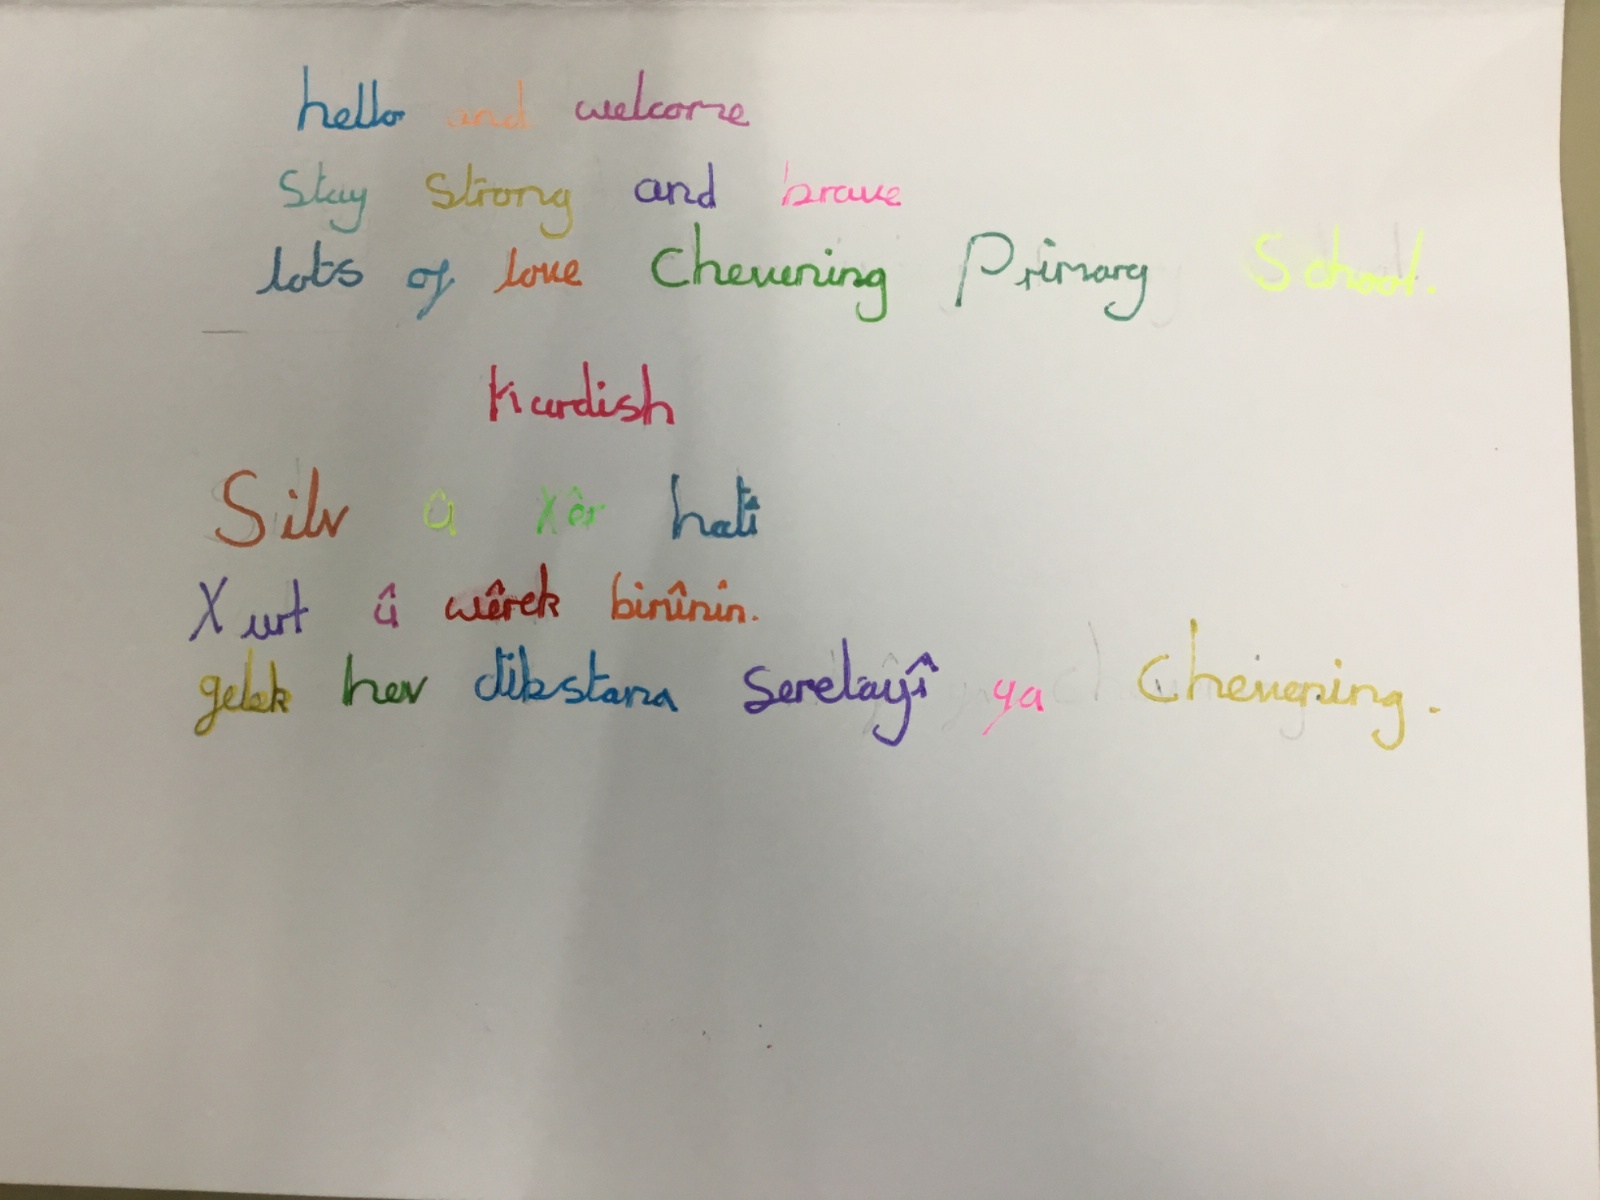 hello and welcome
Stay Strong and brave
lots of love Chevening Primary School.
Kurdish
Silv û Xêr hatî
Xurt û wêrek binînin.
gelek hev dibstana Seretayî ya Chevening.